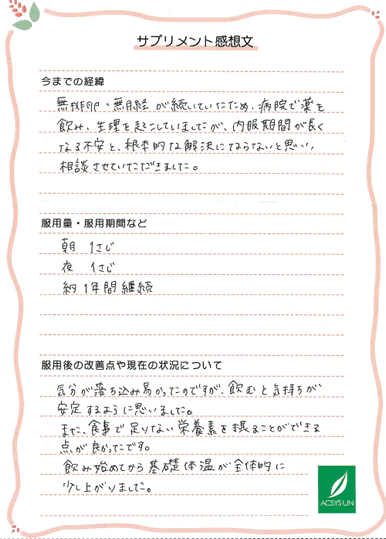 サプリメント感想文
今までの経緯
無排卵・無月経が続いていたため、病院で薬を
飲み、生理を起こしていましたが、内服期間が長く
なる不安と、根本的な解決にならないと思い、
相談させていただきました。
服用量・服用期間など
朝 1さじ
夜 1さじ
約1年間継続
服用後の改善点や現在の状況について
気分が落ち込み易かったのですが、飲むと気持ちが
安定するように思いました。
また、食事で足りない栄養素を摂ることができる
点が良かったです。
飲み始めてから基礎体温が全体的に
少し上がりました。
ACSYSUN